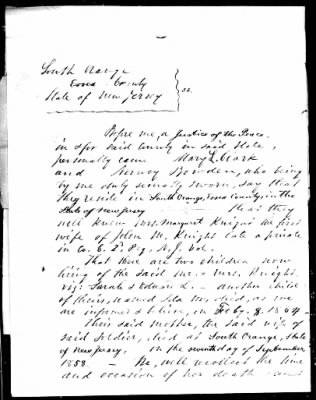 South Orange
Essex County } ss.
State of New Jersey
Before me, a Justice of the Peace
in & for said County in said State,
personally came Mary L. Clark
and Bowden, who being
by me duly severally sworn, say that
they reside in South Orange, Essex County, in the
State of New Jersey that they
well knew Mrs. Margaret Knight the first
wife of John M. Knight late a private
in Co. E. 2d Reg. N.J. Vol.
That there are two children now
living of the said Mr. & Mrs. Knight.
viz: Sarah & Edward L. – another child
of theirs, named Ida M. died, as we
are informed & believe, in Feby. 8. 1864
Their said mother, the said wife of
said Soldier, died at South Orange, State
of New Jersey, on the seventh day of September
1858. – We, well recollect the time
and occasion of her death